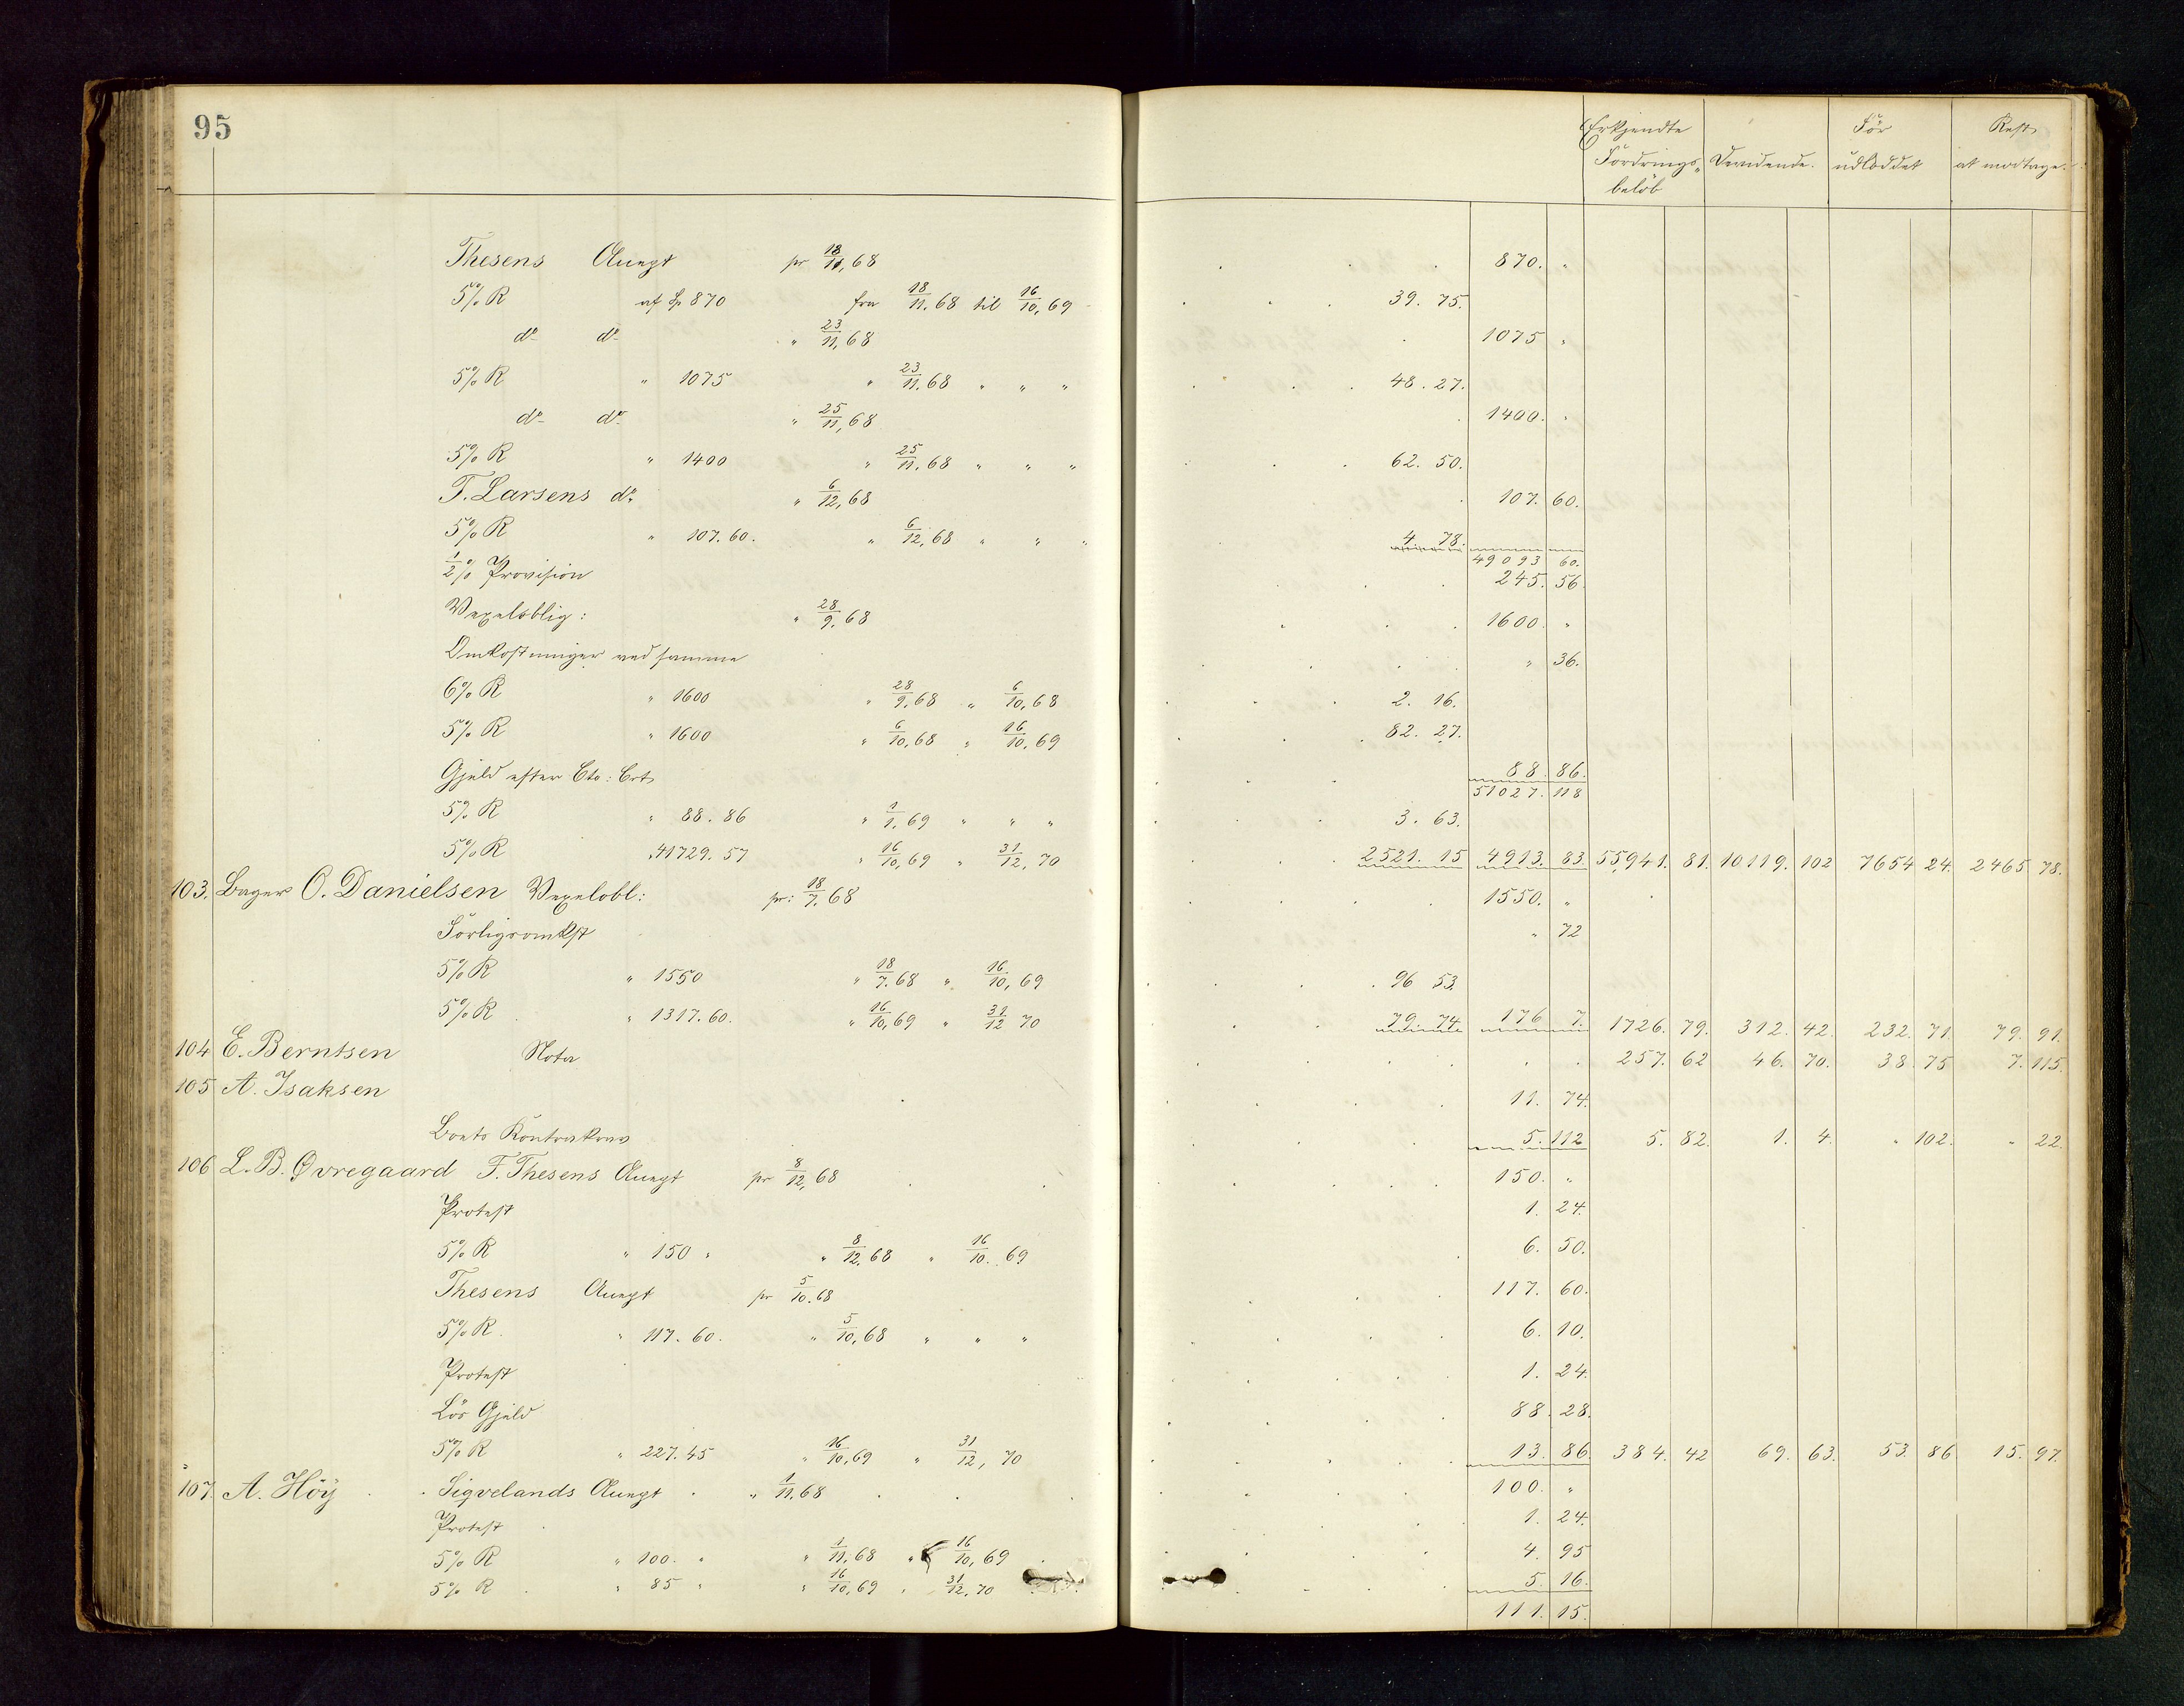 95
Erkjendte Fordrings- beløb | Dividende. | Før udloddet | Rest at modtage.
Thesens Acungt pr 18/11, 68 870. "
5% R af Sp 870 fra 18/11. 68 til 16/10, 69 39. 75.
do do " 23/11, 68 1075 "
5% R " 1075 " 23/11. 68 " " " 48. 27.
do do " 25/11, 68 1400. "
5% R " 1400 " 25/11. 68 " " " 62. 50.
T. Larsens do " 6/12, 68 107. 60.
5% R " 107. 60. " 6/12, 68 " " " 4. 78.
49093 60.
1/2% Provision 245. 56
Vexeloblig: " 28/9. 68 1600. "
Omkostninger ved samme " 36.
6% R " 1600 " 28/9. 68 " 6/10, 68 2. 16.
5% R " 1600 " 6/10, 68 " 16/10, 69 82. 27.
Gjæld efter Cto: Crt 88. 86.
51027. 118
5% R " 88. 86 " 1/1. 69 " " " 3. 63.
5% R " 41729. 57 " 16/10, 69 " 31/12, 70 2521. 15 4913. 83. 55,941. 81. 10119. 102 7654 24. 2465 78.
103. Bager O. Danielsen Vexelobl: pr: 18/7. 68 1550. "
Forligsomkst " 72
5% R " 1550 " 18/7. 68 " 16/10, 69 96 53.
5% R " 1317. 60. " 16/10, 69 " 31/12 70 79. 74. 176 7. 1726. 79. 312. 42. 232. 71. 79. 91.
104 E. Berntsen Nota 257. 62 46. 70. 38. 75 7. 115.
105 A. Isaksen 11. 74.
Conto Kontrakrav 5. 112 5. 82. 1. 4. " 102. " 22.
106 L. B. Øvregaard F. Thesens Acungt pr 8/12, 68 150. "
Protest 1. 24.
5% R " 150 " " 8/12, 68 " 16/10. 69 6. 50.
Thesens Acungt pr 5/10. 68 117. 60.
5% R. " 117. 60. " 5/10, 68 " " " 6. 10.
Protest 1. 24.
Lös Gjæld 88. 28.
5% R " 227. 45 " 16/10, 69 " 31/12, 70 13. 86. 384. 42 69. 63. 53. 86 15. 97.
107. A. Höÿ Sigvelands Acungt " 1/11. 68 100. "
Protest 1. 24.
5% R " 100. " " 1/11, 68 " 16/10, 69 4. 95
5% R " 85 " " 16/10, 69 " 31/12, 70 5. 16.
111. 15.